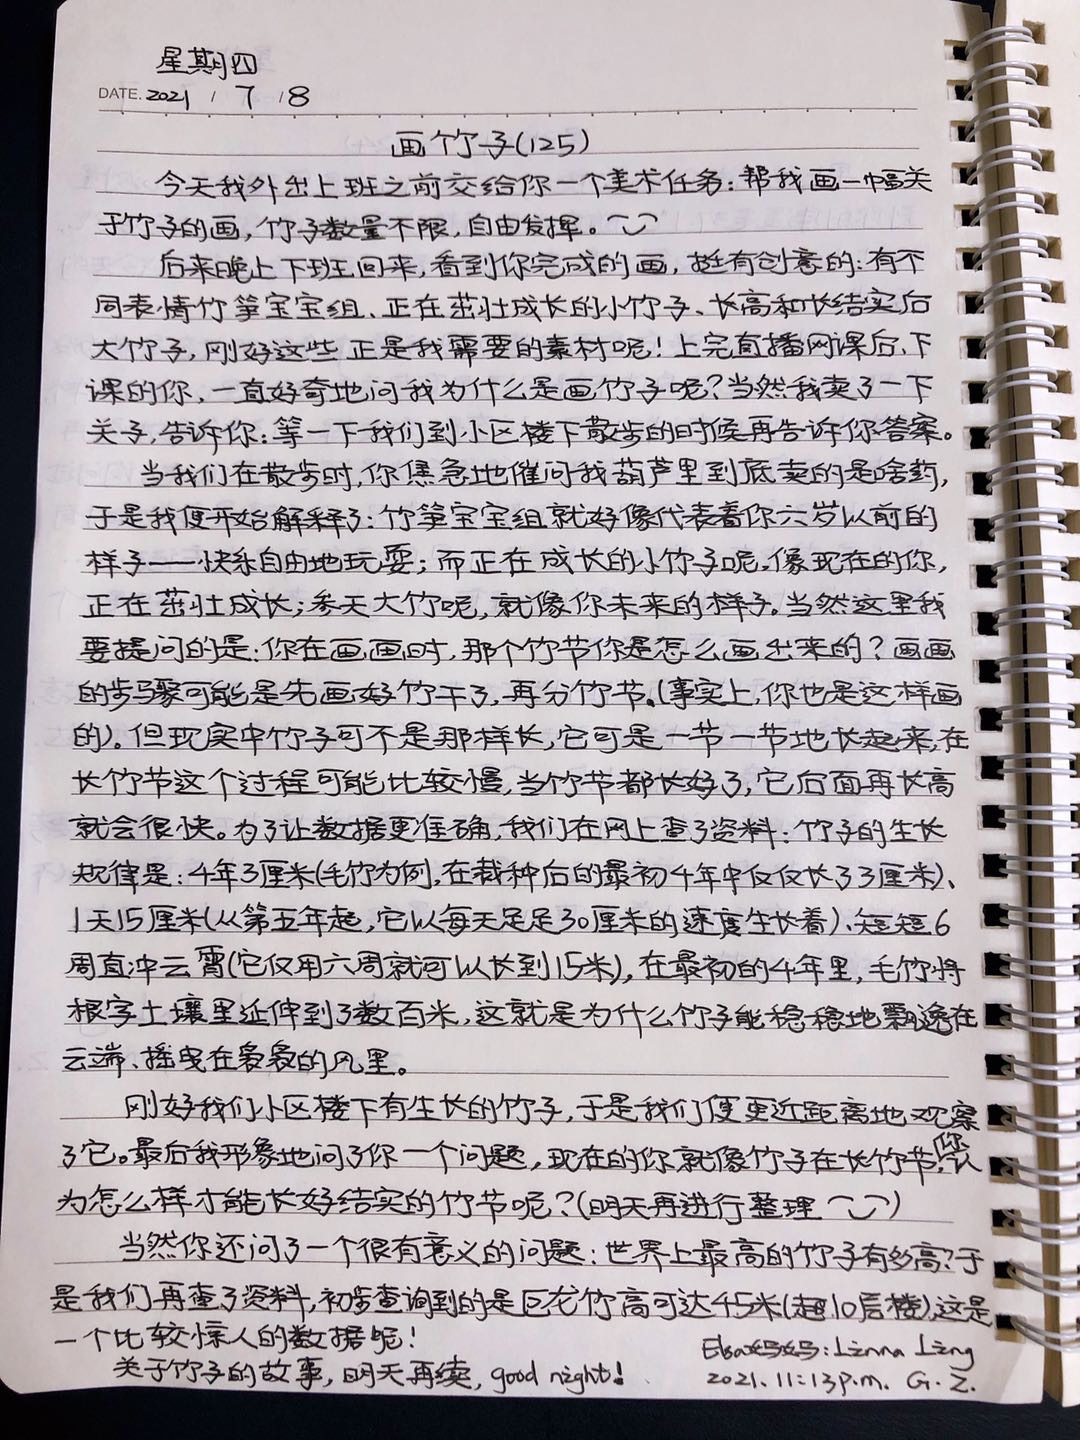 星期四
DATE. 2021 / 7 / 8
画竹子(125)
今天我外出上班之前交给你一个美术任务:帮我画一幅关
于竹子的画,竹子数量不限,自由发挥。
后来晚上下班回来,看到你完成的画,挺有创意的:有不
同表情竹笋宝宝组、正在茁壮成长的小竹子、长高和长结实后
大竹子,刚好这些正是我需要的素材呢!上完直播网课后、下
课的你,一直好奇地问我为什么是画竹子呢?当然我卖了一下
关子,告诉你:等一下我们到小区楼下散步的时候再告诉你答案。
当我们在散步时,你焦急地催问我葫芦里到底卖的是啥药,
于是我便开始解释了:竹笋宝宝组就好像代表着你六岁以前的
样子——快乐自由地玩耍;而正在成长的小竹子呢,像现在的你,
正在茁壮成长;参天大竹呢,就像你未来的样子。当然这里我
要提问的是:你在画画时,那个竹节你是怎么画出来的?画画
的步骤可能是先画好竹干了,再分竹节。(事实上,你也是这样画
的)。但现实中竹子可不是那样长,它可是一节一节地长起来,在
长竹节这个过程可能比较慢,当竹节都长好了,它后面再长高
就会很快。为了让数据更准确,我们在网上查了资料:竹子的生长
规律是:4年3厘米(毛竹为例,在栽种后的最初4年中仅仅长了3厘米)、
1天15厘米(从第五年起,它以每天足足30厘米的速度生长着)、短短6
周直冲云霄(它仅用六周就可以长到15米),在最初的4年里,毛竹将
根字土壤里延伸到了数百米,这就是为什么竹子能稳稳地飘逸在
云端、摇曳在袅袅的风里。
刚好我们小区楼下有生长的竹子,于是我们便更近距离地观察
了它。最后我形象地问了你一个问题,现在的你就像竹子在长竹节,你认
为怎么样才能长好结实的竹节呢?(明天再进行整理)
当然你还问了一个很有意义的问题:世界上最高的竹子有多高?于
是我们再查了资料,初步查询到的是巨龙竹高可达45米(超10层楼),这是
一个比较惊人的数据呢!
关于竹子的故事,明天再续,good night!
Elsa妈妈:Linna Ling
2021. 11:13p.m. G. Z.